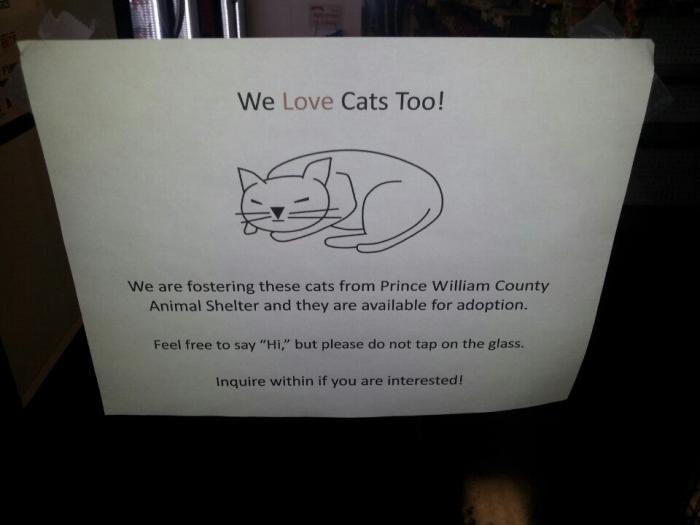 We Love Cats Too!
We are fostering these cats from Prince William County
Animal Shelter and they are available for adoption.
Feel free to say “Hi,” but please do not tap on the glass.
Inquire within if you are interested!